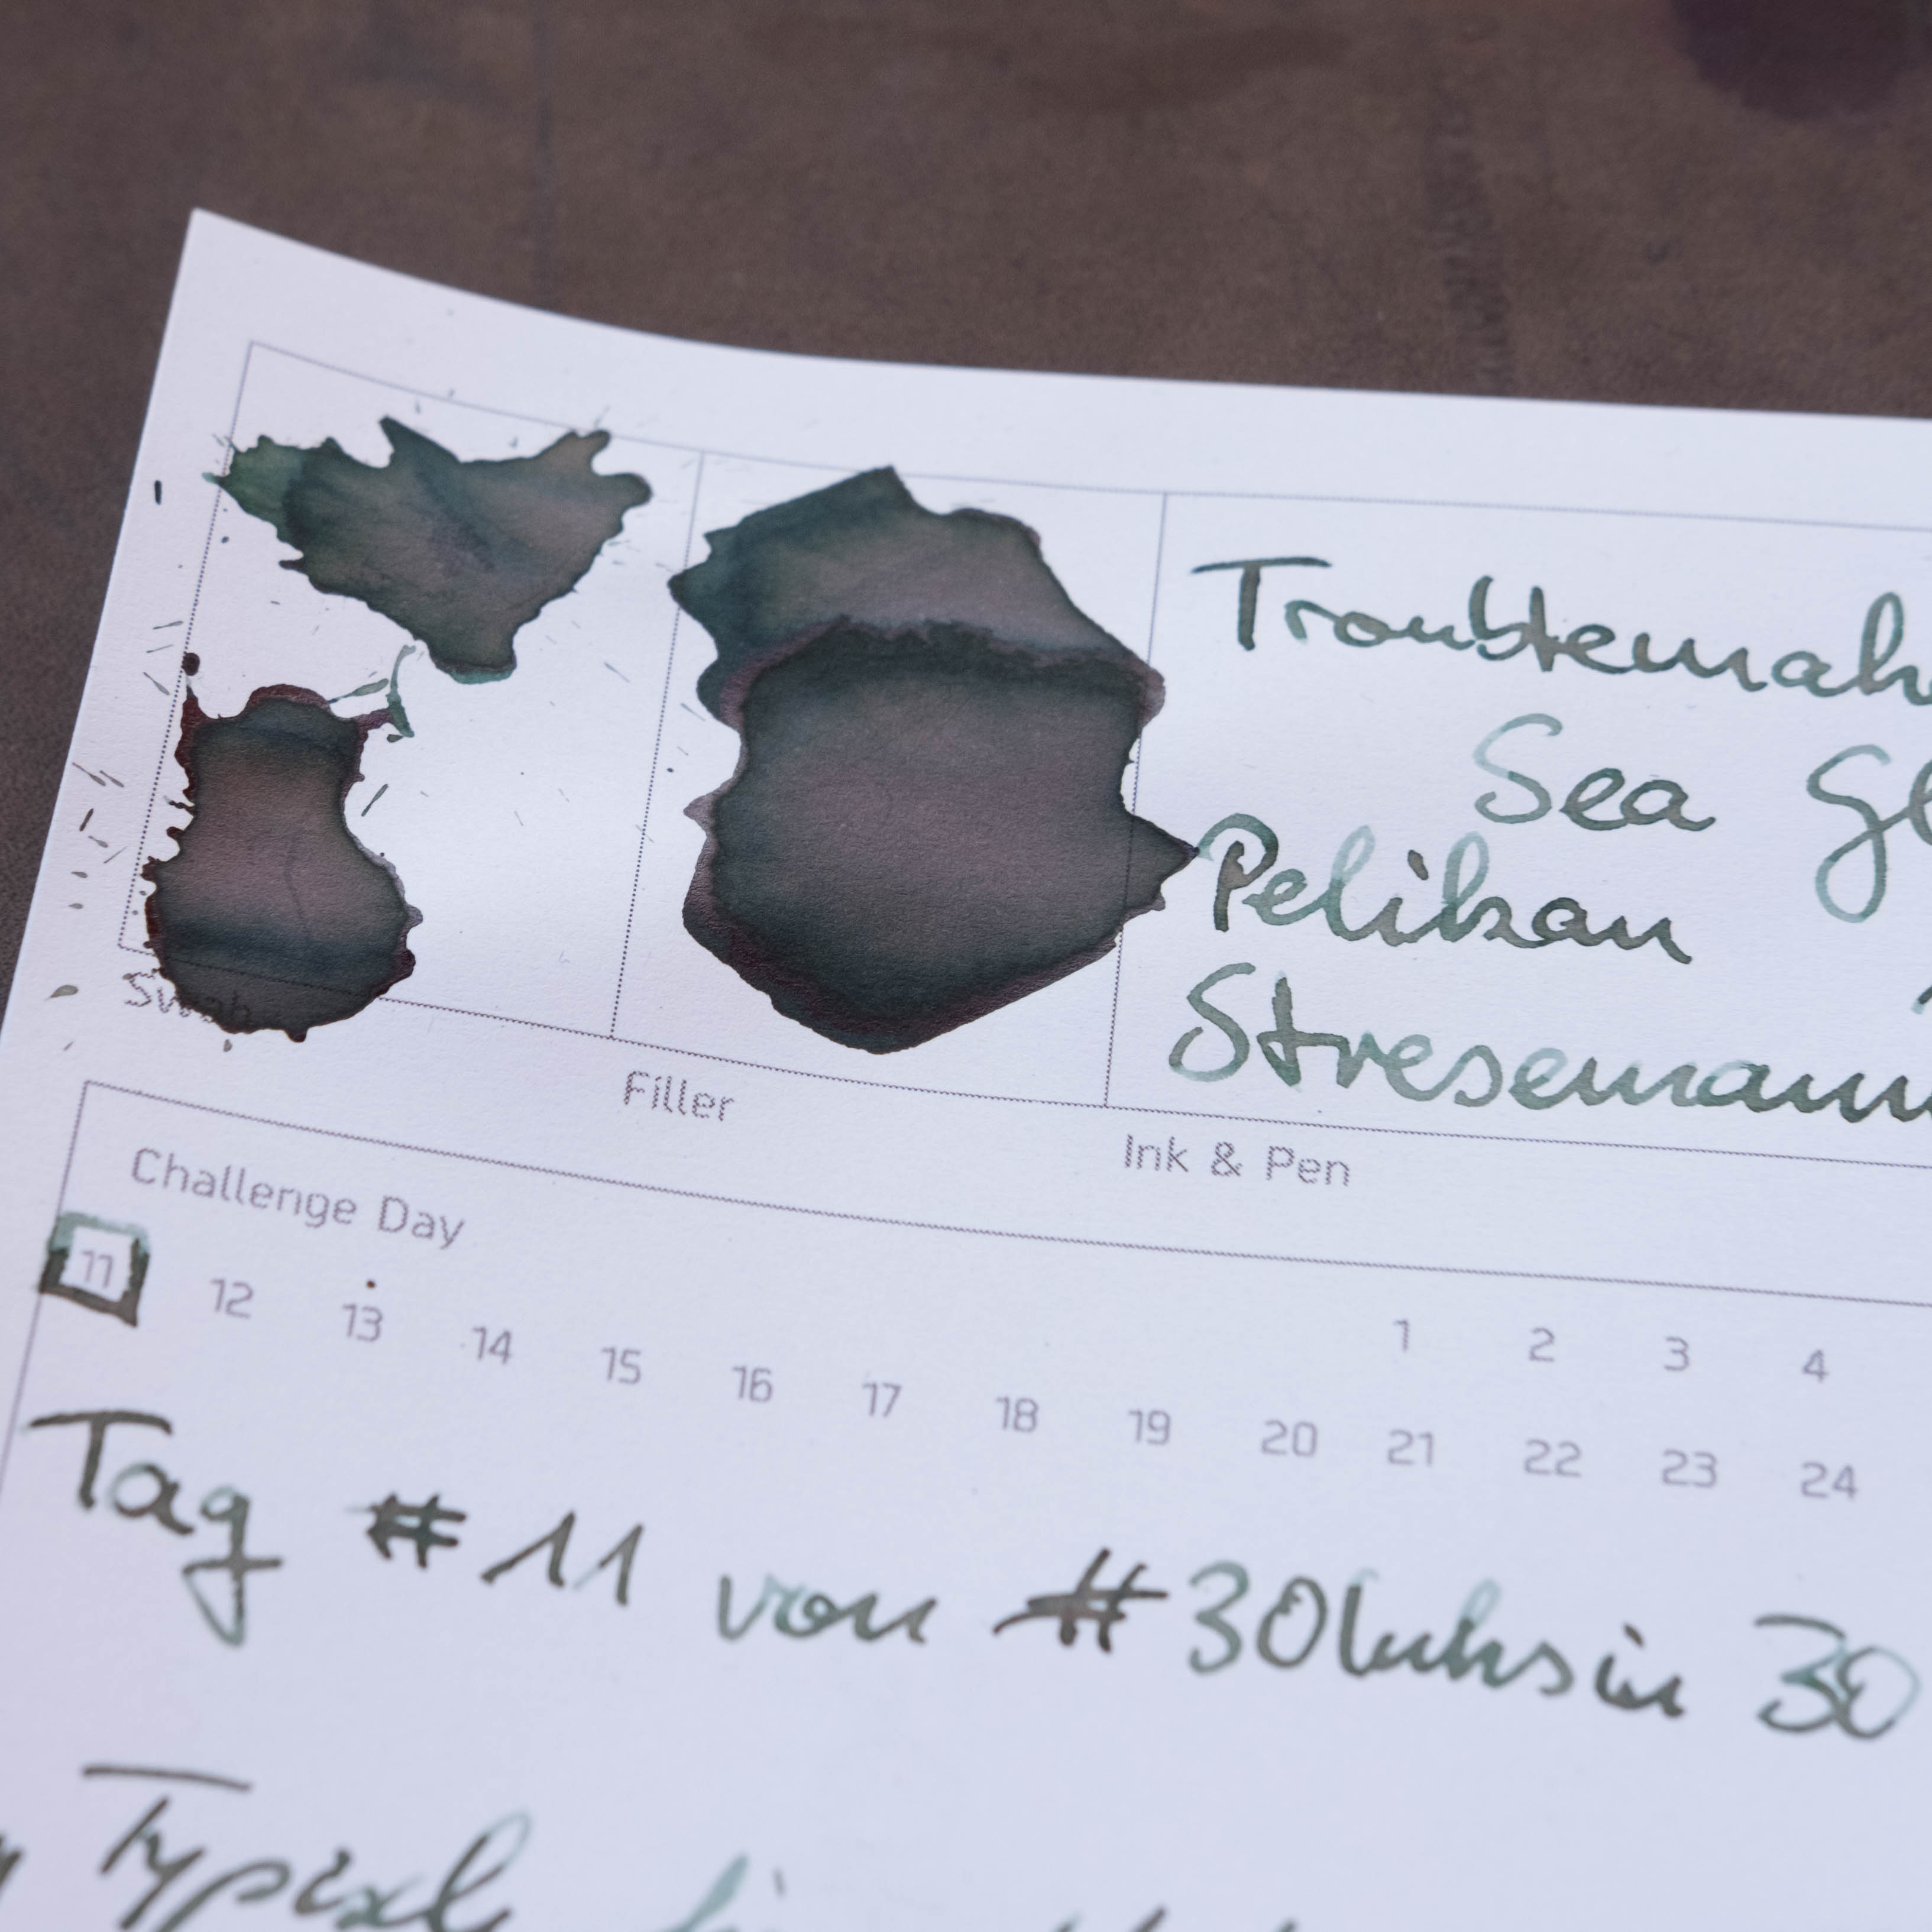 Troublemak
Sea Gl
Pelikan
Stresemann
Swab
Filler
Ink & Pen
Challenge Day
1 2 3 4
11 12 13 14 15 16 17 18 19 20 21 22 23 24
Tag #11 von #30Inksin 30
Typisch